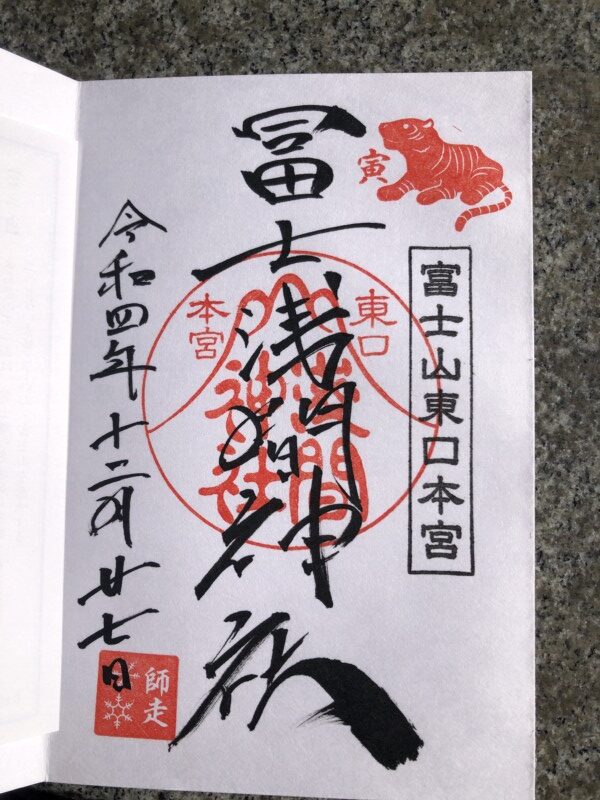 寅
富士山東口本宮
冨士浅間神社
東口
本宮
浅間
神社
令和四年十二月廿七日
師走